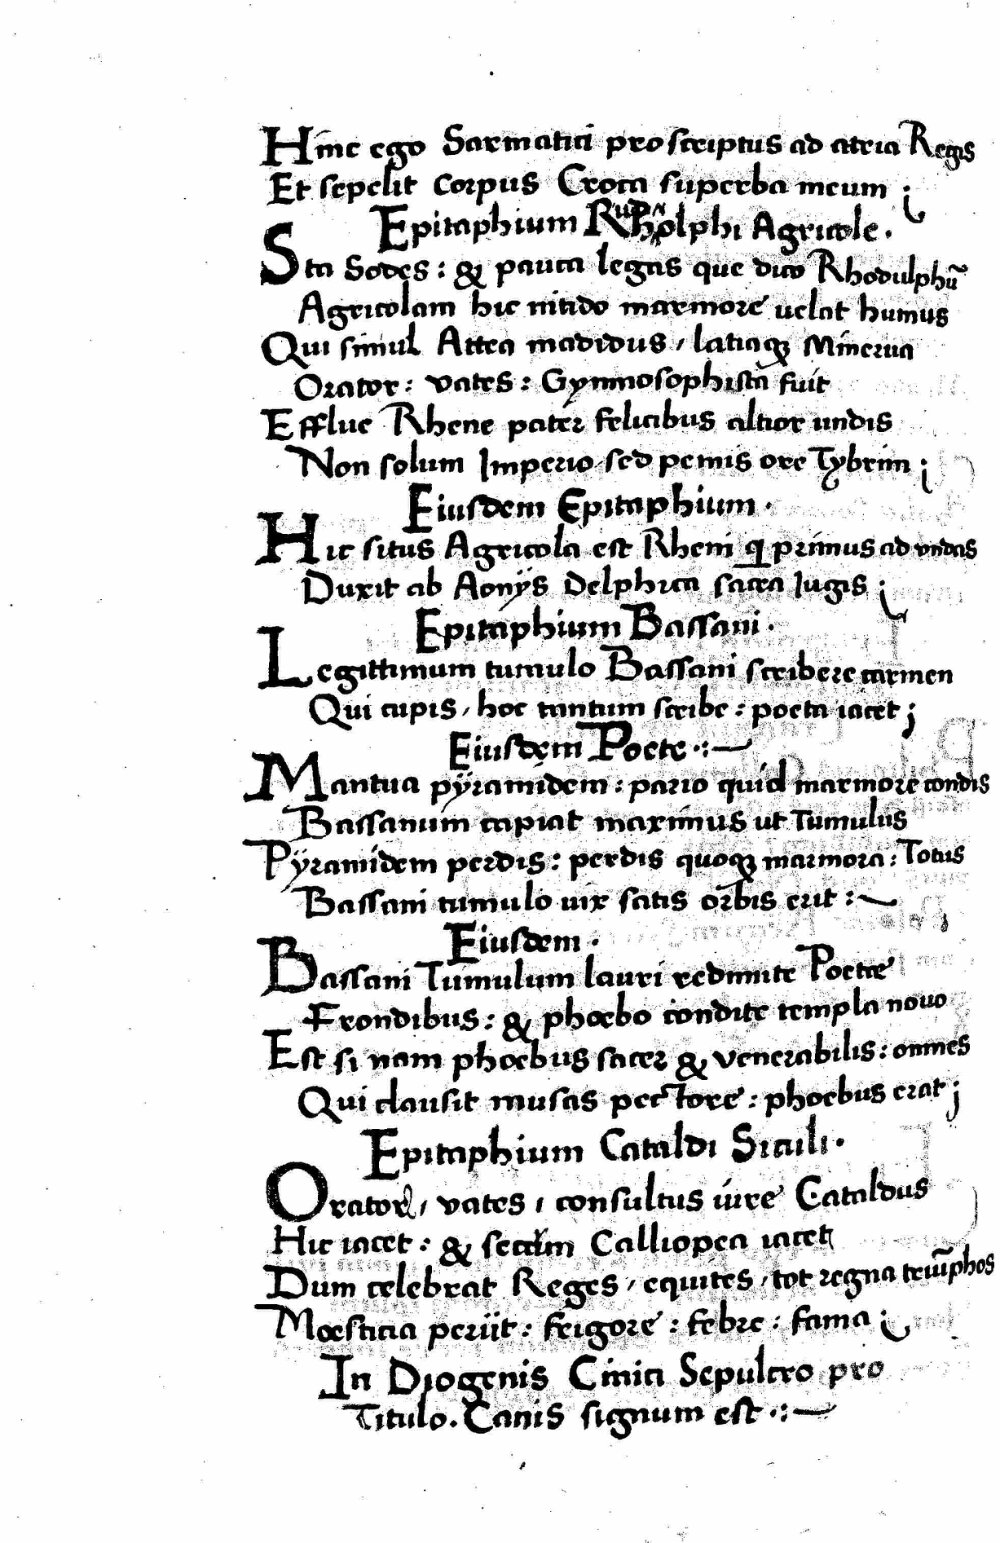 Hinc ego Sarmatici proscriptus ad atria Regis
Et sepelit corpus Croca superba meum ;
Epitaphium Rudholphi Agricole .
Sta Sodes : & pauca legas que dico Rhodulphū
Agricolam hic nitido marmore uelat humus
Qui simul Attea madidus / latiaqʒ Minerua
Orator : vates : Gymnosophista fuit
Efflue Rhene pater felicibus altior undis
Non solum Imperio sed pennis ore Tybrim ;
Eiusdem Epitaphium .
Hic situs Agricola est Rheni ꝗ primus ad vndas
Duxit ab Aonÿs Delphica sacra Iugis ;
Epitaphium Bassani .
Legittimum tumulo Bassani scribere carmen
Qui cupis / hoc tantum scribe : poeta iacet ;
Eiusdem Poete .:~
Mantua pÿramidem : pario quid marmore condis
Bassanum capiat maximus ut Tumulus
Pÿramidem perdis : perdis quoqʒ marmora : Totus
Bassani tumulo uix satis orbis erit :~
Eiusdem .
Bassani Tumulum lauri redimite Poetae
Frondibus : & phoebo condite templa nouo
Est si nam phoebus sacer & venerabilis : omnes
Qui clausit musas pectore : phoebus erat ;
Epitaphium Cataldi Siculi .
Orator / vates / consultus iure Cataldus
Hic iacet : & secum Calliopea iacet
Dum celebrat Reges / equites / tot regna triūphos
Moesticia periit : frigore : febre : fama ;
In Diogenis Cinici Sepulcro pro
Titulo . Canis signum est .:~